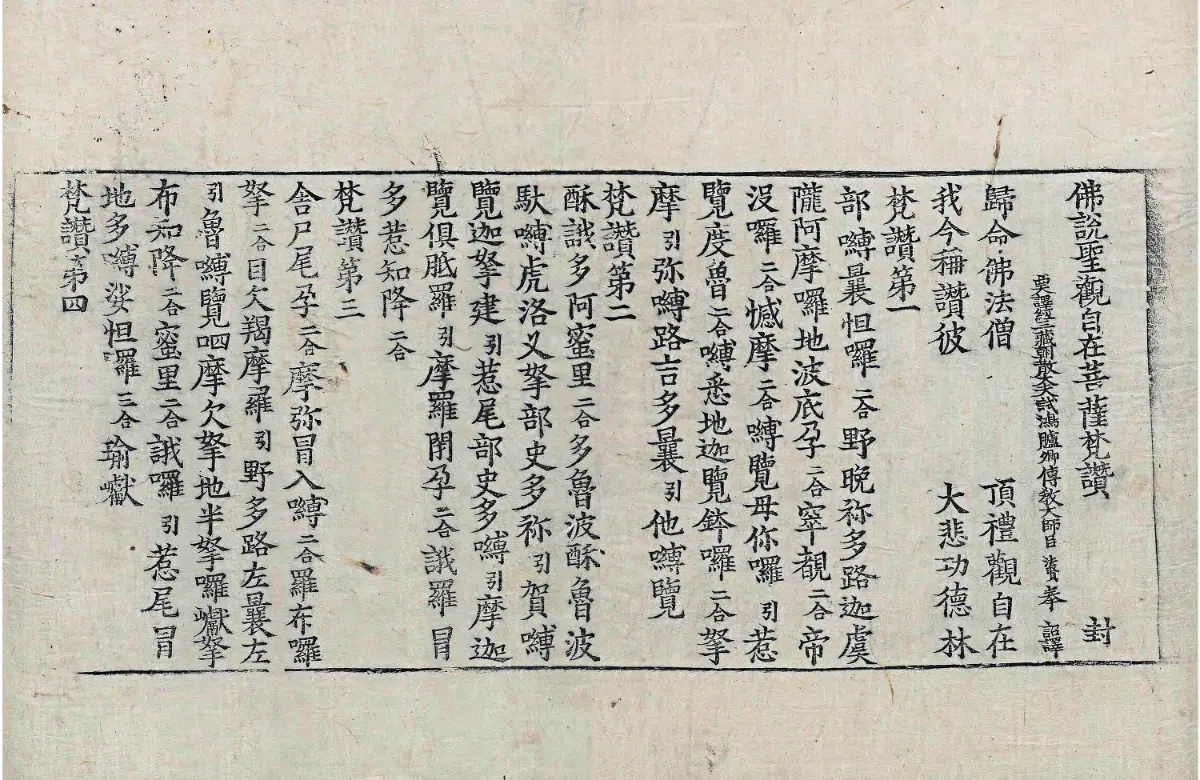 佛說聖觀自在菩薩梵讚 封
西天譯經三藏朝散大夫試鴻臚卿傳教大師臣法賢奉 詔譯
歸命佛法僧 頂禮觀自在
我今稱讚彼 大悲功德林
梵讚第一
部嚩曩怛囉二合野晚祢多路迦虞
隴阿摩囉地波底孕二合窣覩二合帝
沒囉二合憾摩二合嚩覽母你囉引惹
覽度魯二合嚩悉地迦覽鉢囉二合拏
摩引弥嚩路吉多曩引他嚩覽
梵讚第二
酥誐多阿蜜里二合多魯波酥魯波
馱嚩虎洛叉拏部史多祢引賀嚩
覽迦拏建引惹尾部史多嚩引摩迦
覽俱胝羅引摩羅閉孕二合誐羅冒
多惹知降二合
梵讚第三
舍尸尾孕二合摩弥冒入嚩二合羅布囉
拏二合目欠羯摩羅引野多路左曩左
引魯嚩覽呬摩欠拏地半拏囉巘拏
布知降二合蜜里二合誐囉引惹尾冒
地多嚩娑怛囉三合瑜巘
梵讚第四